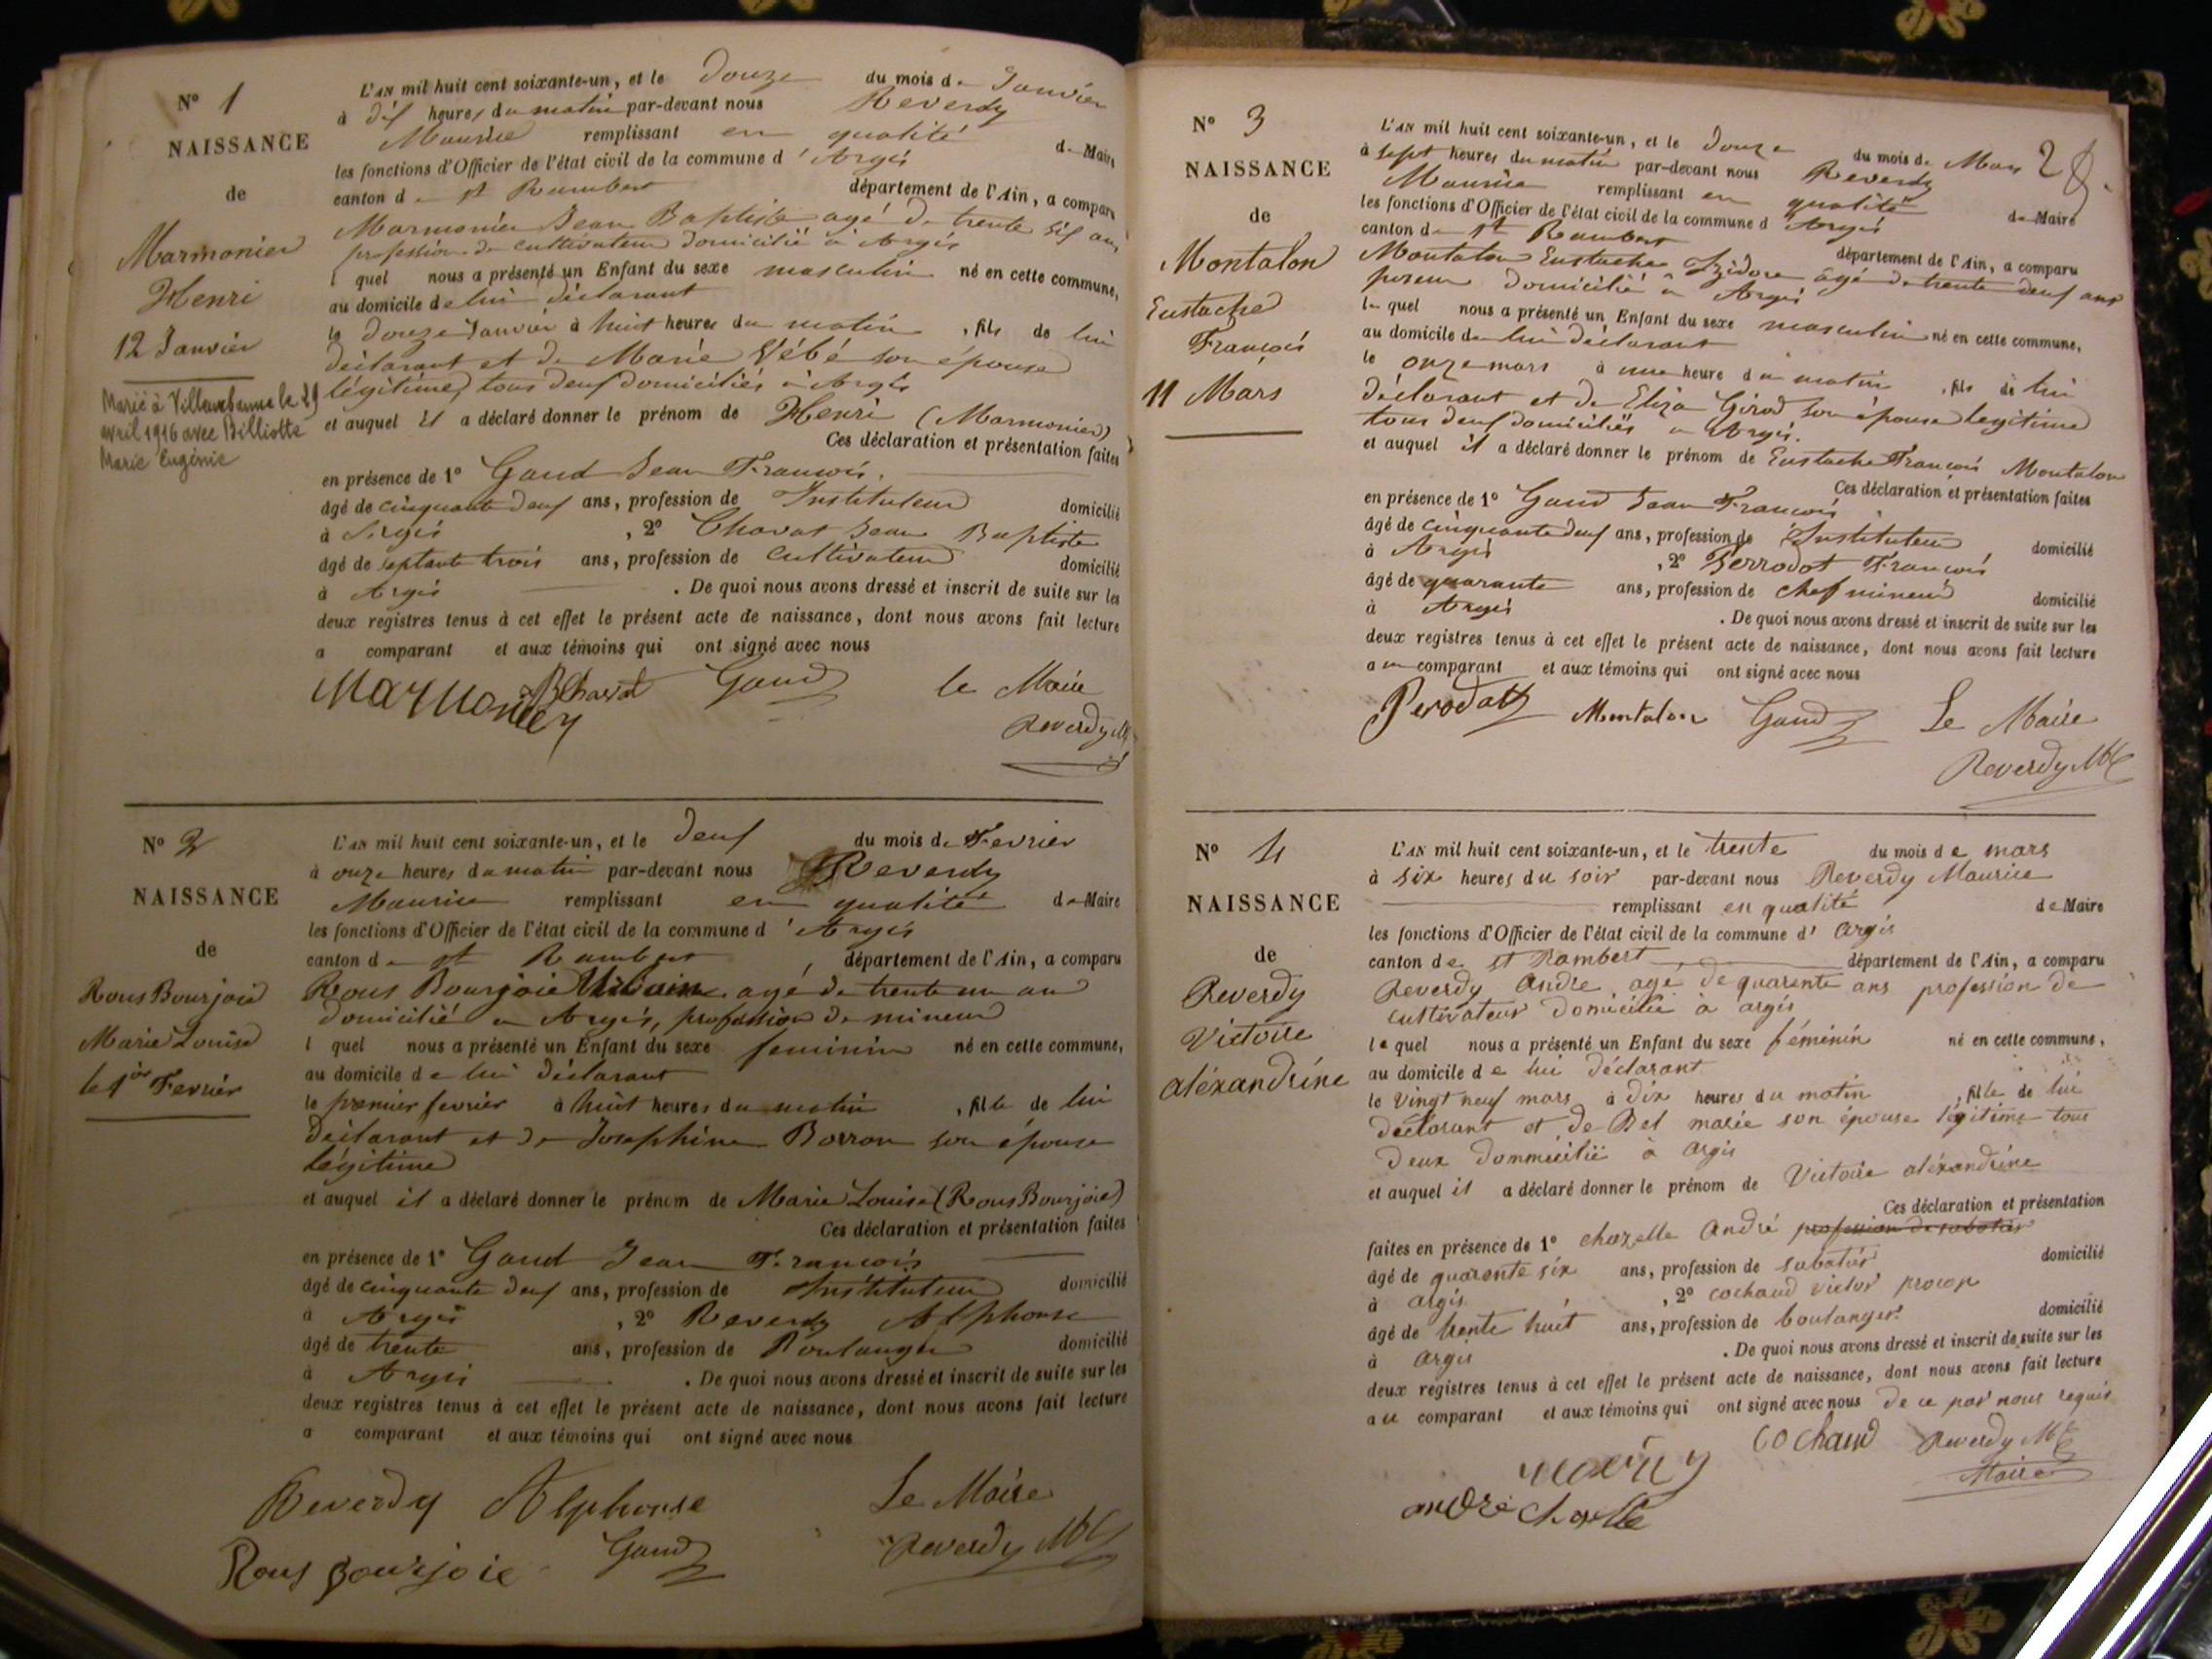 N° 1
NAISSANCE
de
Marmonier
Henri
12 Janvier
Marié à Villeurbanne le 29
avril 1916 avec Billiotte
Marie Eugénie
L'AN mil huit cent soixante-un, et le douze du mois de Janvier
à dix heures du matin par-devant nous Reverdy
Maurice remplissant en qualité de Maire
les fonctions d'Officier de l'état civil de la commune d'Argis
canton de St Rambert département de l'Ain, a comparu
Marmonier Jean Baptiste agé de trente six ans,
profession de cultivateur domicilié à Argis
l quel nous a présenté un Enfant du sexe masculin né en cette commune,
au domicile de lui déclarant
le douze Janvier à huit heures du matin, fils de lui
déclarant et de Marie Bébé son épouse
légitime, tous deux domiciliés à Argis
et auquel il a déclaré donner le prénom de Henri (Marmonier)
Ces déclaration et présentation faites
en présence de 1° Gaud Jean François.
âgé de cinquante deux ans, profession de Instituteur domicilié
à Argis, 2° Chavat Jean Baptiste
âgé de septante trois ans, profession de cultivateur domicilié
à Argis. De quoi nous avons dressé et inscrit de suite sur les
deux registres tenus à cet effet le présent acte de naissance, dont nous avons fait lecture
a comparant et aux témoins qui ont signé avec nous
Marmonier JBChavat Gaud le Maire
Reverdy Mce
N° 2
NAISSANCE
de
Rous Bourjoie
Marie Louise
le 1er Fevrier
L'AN mil huit cent soixante-un, et le deux du mois de Fevrier
à onze heures du matin par-devant nous Reverdy
Maurice remplissant en qualité de Maire
les fonctions d'Officier de l'état civil de la commune d'Argis
canton de St Rambert, département de l'Ain, a comparu
Rous Bourjoie agé de trente un an
domicilié à Argis, profession de mineur
l quel nous a présenté un Enfant du sexe feminin né en cette commune,
au domicile de lui déclarant
le premier fevrier à huit heures du matin, fille de lui
déclarant et de Josephine Borron son épouse
légitime
et auquel il a déclaré donner le prénom de Marie Louise (Rous Bourjoie)
Ces déclaration et présentation faites
en présence de 1° Gaud Jean François
âgé de cinquante deux ans, profession de Instituteur domicilié
à Argis, 2° Reverdy Alphonse
âgé de trente ans, profession de Boulanger domicilié
à Argis. De quoi nous avons dressé et inscrit de suite sur les
deux registres tenus à cet effet le présent acte de naissance, dont nous avons fait lecture
a comparant et aux témoins qui ont signé avec nous
Reverdy Alphonse Le Maire
Rous Bourjoie Gaud Reverdy Mce
N° 3
NAISSANCE
de
Montalon
Eustache
François
11 Mars
2
L'AN mil huit cent soixante-un, et le douze du mois de Mars
à sept heures du matin par-devant nous Reverdy
Maurice remplissant en qualité de Maire
les fonctions d'Officier de l'état civil de la commune d'Argis
canton de St Rambert département de l'Ain, a comparu
Montalon Eustache Izidore âgé de trente deux ans
poseur domicilié à Argis
le quel nous a présenté un Enfant du sexe masculin né en cette commune,
au domicile de lui déclarant
le onze mars à une heure du matin, fils de lui
déclarant et de Eliza Girod son épouse legitime
tous deux domiciliés à Argis.
et auquel il a déclaré donner le prénom de Eustache François Montalon
Ces déclaration et présentation faites
en présence de 1° Gaud Jean François
âgé de cinquante deux ans, profession de Instituteur domicilié
à Argis, 2° Perrodot François
âgé de quarante ans, profession de chef mineur domicilié
à Argis. De quoi nous avons dressé et inscrit de suite sur les
deux registres tenus à cet effet le présent acte de naissance, dont nous avons fait lecture
au comparant et aux témoins qui ont signé avec nous
Perodot Montalon Gaud Le Maire
Reverdy Mce
N° 4
NAISSANCE
de
Reverdy
Victoire
aléxandrine
L'AN mil huit cent soixante-un, et le trente du mois de mars
à six heures du soir par-devant nous Reverdy Maurice
remplissant en qualité de Maire
les fonctions d'Officier de l'état civil de la commune d'argis
canton de st Rambert département de l'Ain, a comparu
Reverdy André agé de quarante ans profession de
cultivateur domicilié à argis
le quel nous a présenté un Enfant du sexe féminin né en cette commune,
au domicile de lui déclarant
le vingt neuf mars à dix heures du matin, fille de lui
déclarant et de Bel marie son épouse légitime tous
deux dommicilié à argis
et auquel il a déclaré donner le prénom de Victoire aléxandrine
Ces déclaration et présentation
faites en présence de 1° chazelle André profession de sabotier
âgé de quarente six ans, profession de sabotier domicilié
à argis, 2° cochaud victor
âgé de trente huit ans, profession de boulanger domicilié
à argis. De quoi nous avons dressé et inscrit de suite sur les
deux registres tenus à cet effet le présent acte de naissance, dont nous avons fait lecture
au comparant et aux témoins qui ont signé avec nous de ce par nous requis
cochaud Reverdy Mce
Maire
andré